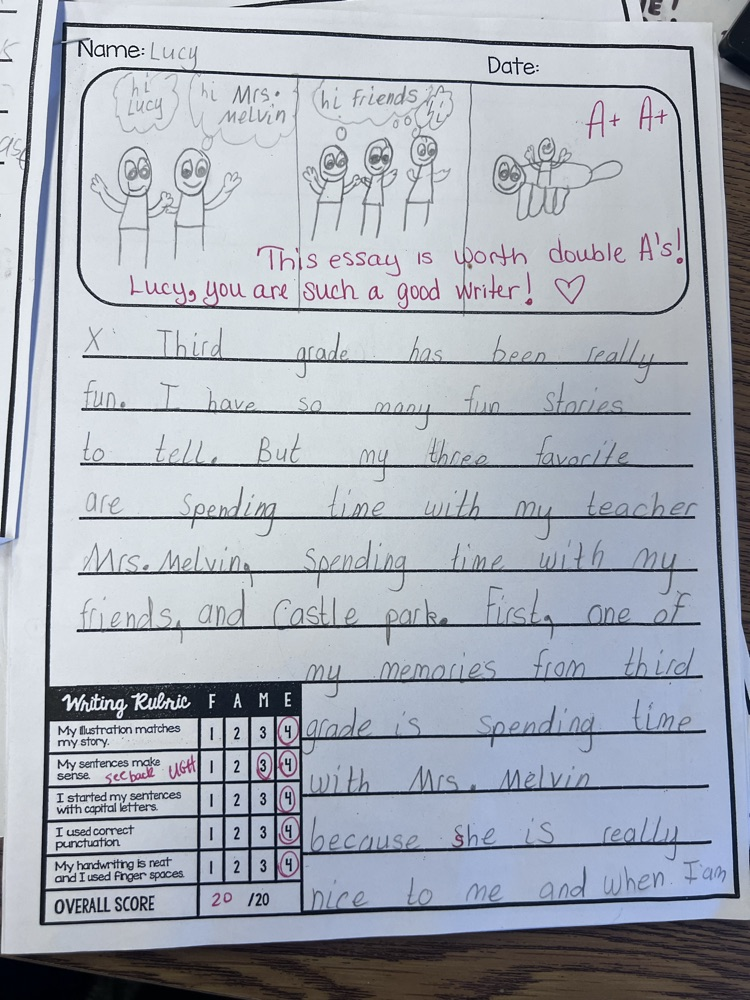 E!
Name: Lucy
Date:
hi Lucy
hi Mrs. Melvin
hi friends
hi
A+ A+
This essay is worth double A's!
Lucy, you are such a good writer! ♡
X Third grade has been really
fun. I have so many fun stories
to tell. But my three favorite
are spending time with my teacher
Mrs. Melvin, spending time with my
friends, and Castle park. First, one of
my memories from third
grade is spending time
with Mrs. Melvin
because she is really
nice to me and when I am
Writing Rubric F A M E
My illustration matches my story. 1 2 3 4
My sentences make sense. see back UGH 1 2 3 4
I started my sentences with capital letters. 1 2 3 4
I used correct punctuation. 1 2 3 4
My handwriting is neat and I used finger spaces. 1 2 3 4
OVERALL SCORE 20 /20